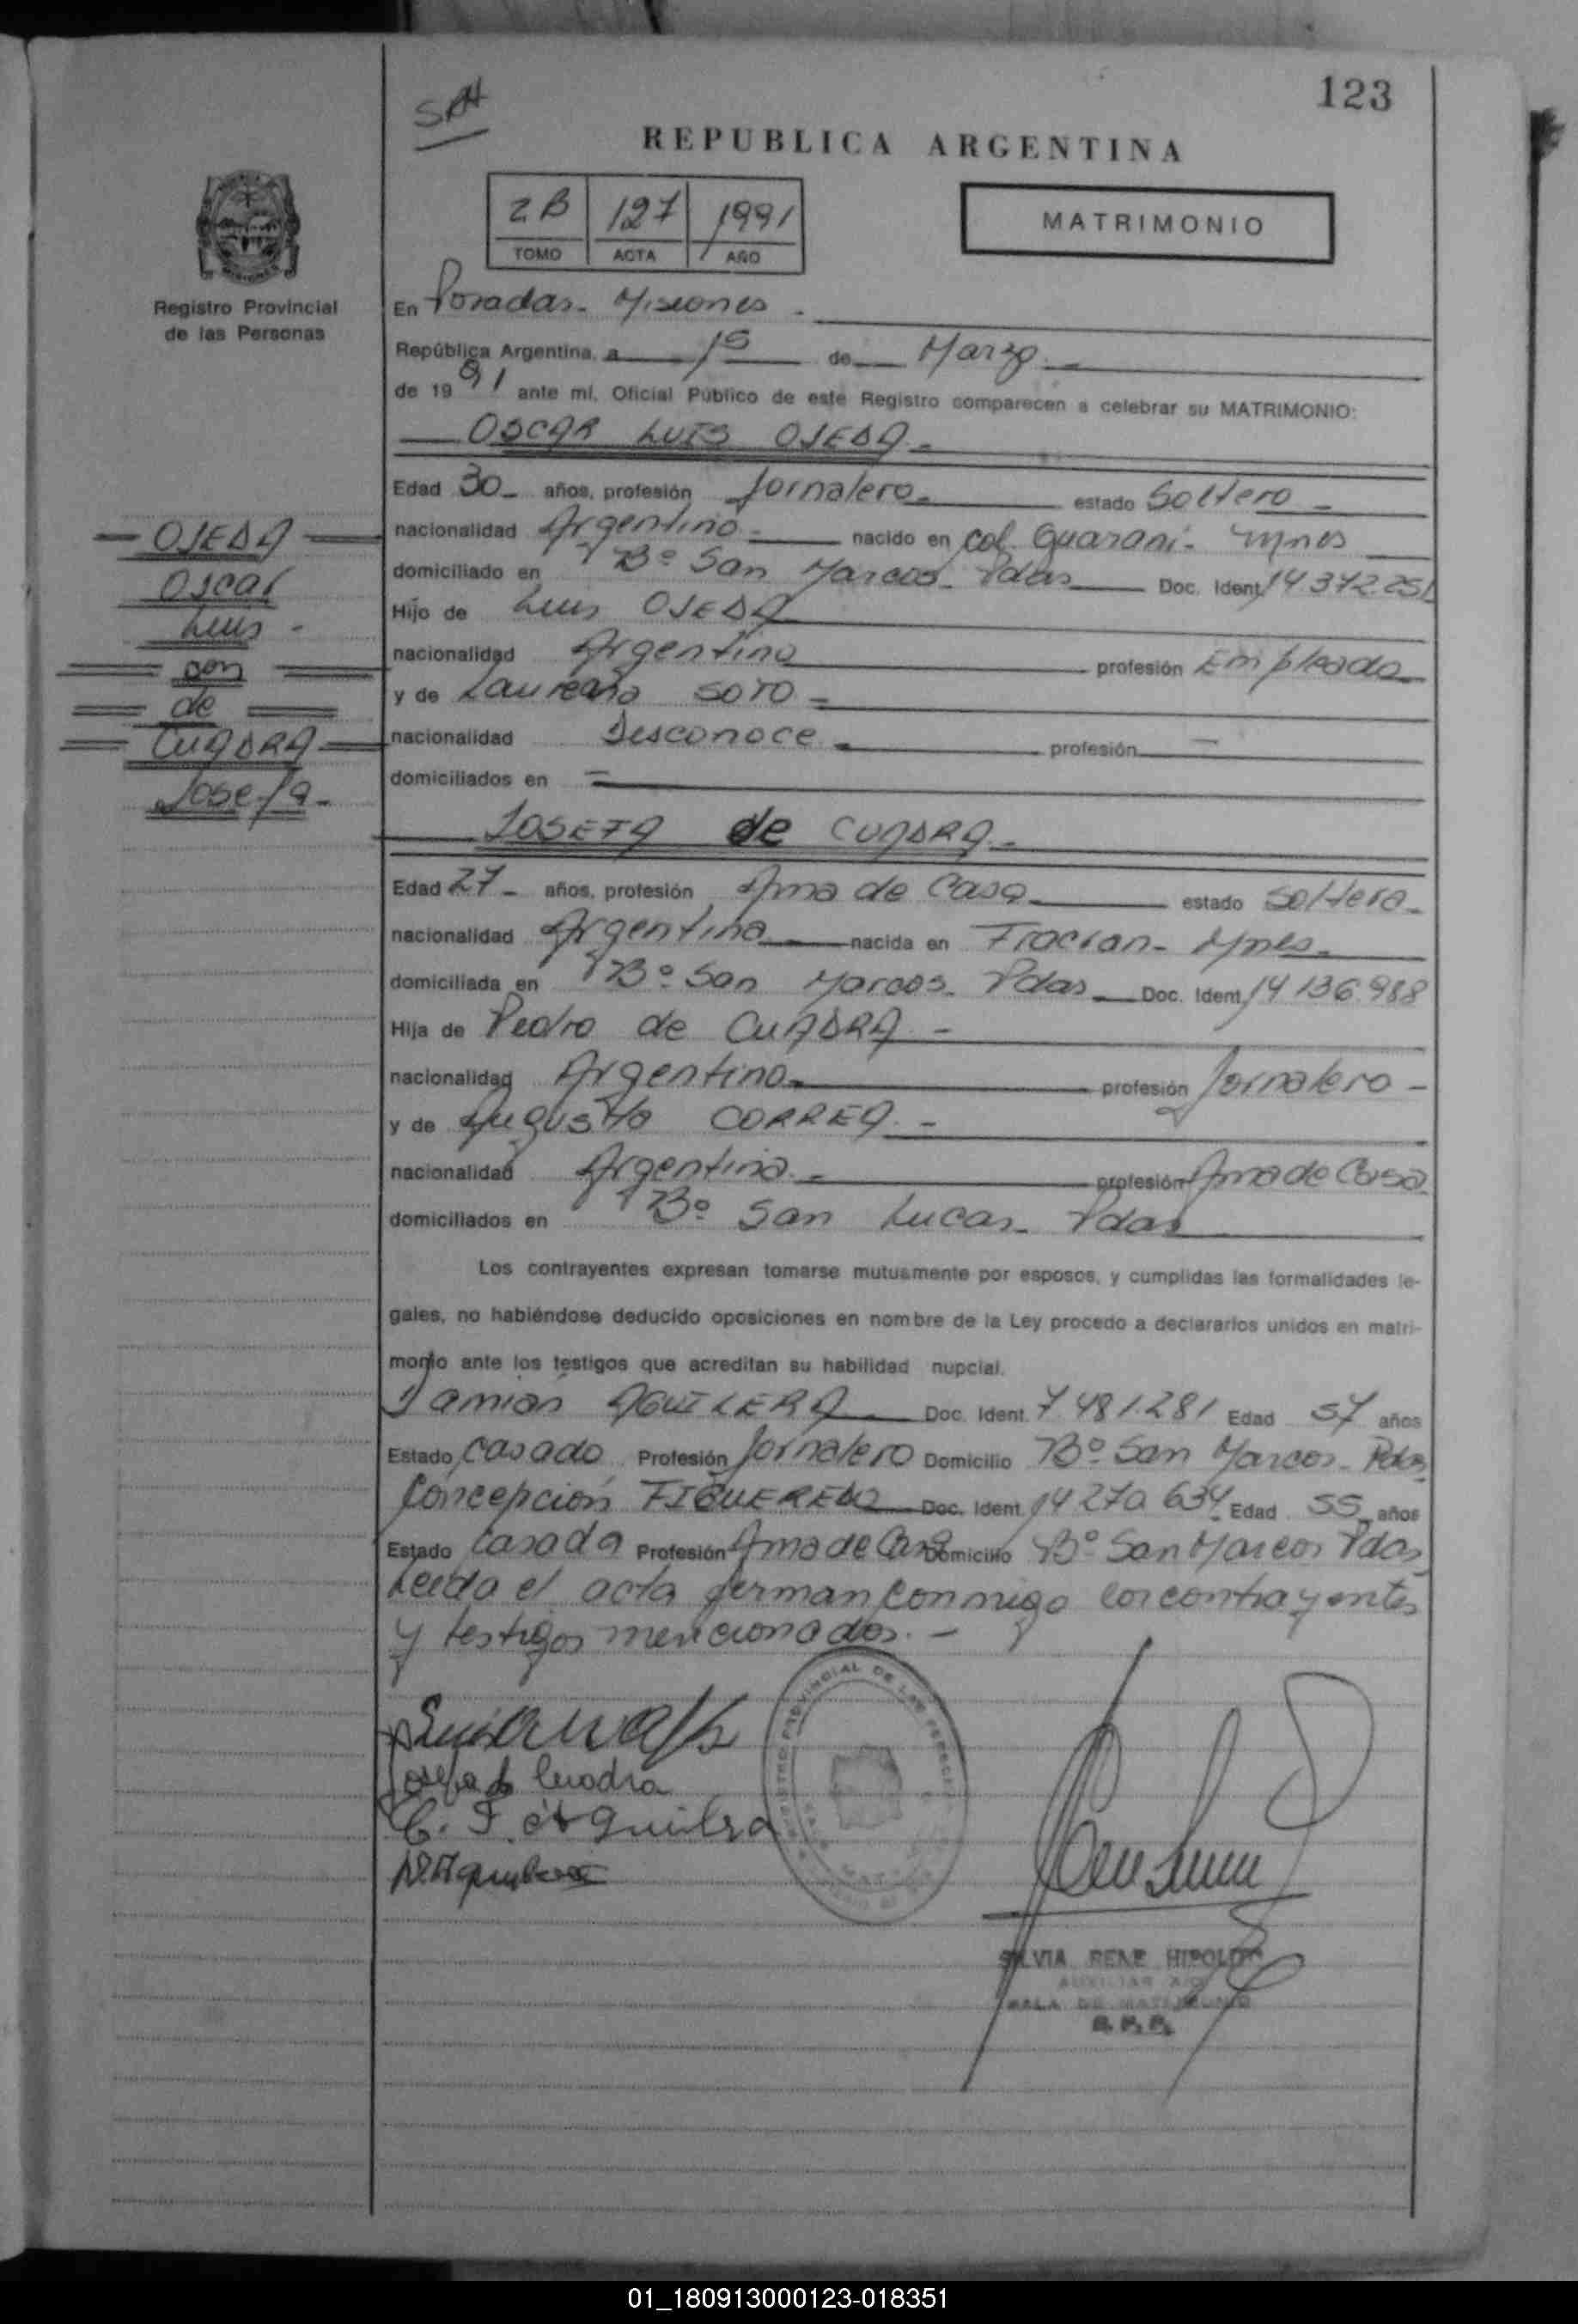 123
SAH
REPUBLICA ARGENTINA
2B 127 1991
TOMO ACTA AÑO
MATRIMONIO
Registro Provincial
de las Personas
En Posadas - Misiones
República Argentina, a 15 de Marzo
de 1991 ante mí, Oficial Público de este Registro comparecen a celebrar su MATRIMONIO:
OSCAR LUIS OJEDA
Edad 30 años, profesión Jornalero estado Soltero
nacionalidad Argentino nacido en Col. Guaraní - Mnes
domiciliado en Bº San Marcos - Pdas Doc. Ident. 14.372.251
Hijo de Luis OJEDA
nacionalidad Argentino profesión Empleado
y de Laureana SOTO
nacionalidad Desconoce profesión -
domiciliados en -
OJEDA
Oscar
Luis -
con
de
CUADRA
Josefa -
JOSEFA de CUADRA
Edad 27 años, profesión Ama de Casa estado Soltera
nacionalidad Argentina nacida en Fracran - Mnes
domiciliada en Bº San Marcos - Pdas Doc. Ident. 14 136.988
Hija de Pedro de CUADRA -
nacionalidad Argentino profesión Jornalero -
y de Augusta CORREA -
nacionalidad Argentina profesión Ama de Casa
domiciliados en Bº San Lucas - Pdas
Los contrayentes expresan tomarse mutuamente por esposos, y cumplidas las formalidades le-
gales, no habiéndose deducido oposiciones en nombre de la Ley procedo a declararlos unidos en matri-
monio ante los testigos que acreditan su habilidad nupcial.
Damián AGUILERA Doc. Ident. 7.481.281 Edad 57 años
Estado Casado Profesión Jornalero Domicilio Bº San Marcos - Pdas
Concepción FIGUEREDO Doc. Ident. 14 270 634 Edad 55 años
Estado Casada Profesión Ama de Casa Domicilio Bº San Marcos Pdas
Leida el acta firman conmigo los contrayentes
y testigos mencionados. -
Josefa de Cuadra
C. F. de Aguilera
REGISTRO PROVINCIAL DE LAS PERSONAS
SILVIA RENE HIPOLITO
AUXILIAR
SALA DE MATRIMONIO
R. P. P.
01_180913000123-018351